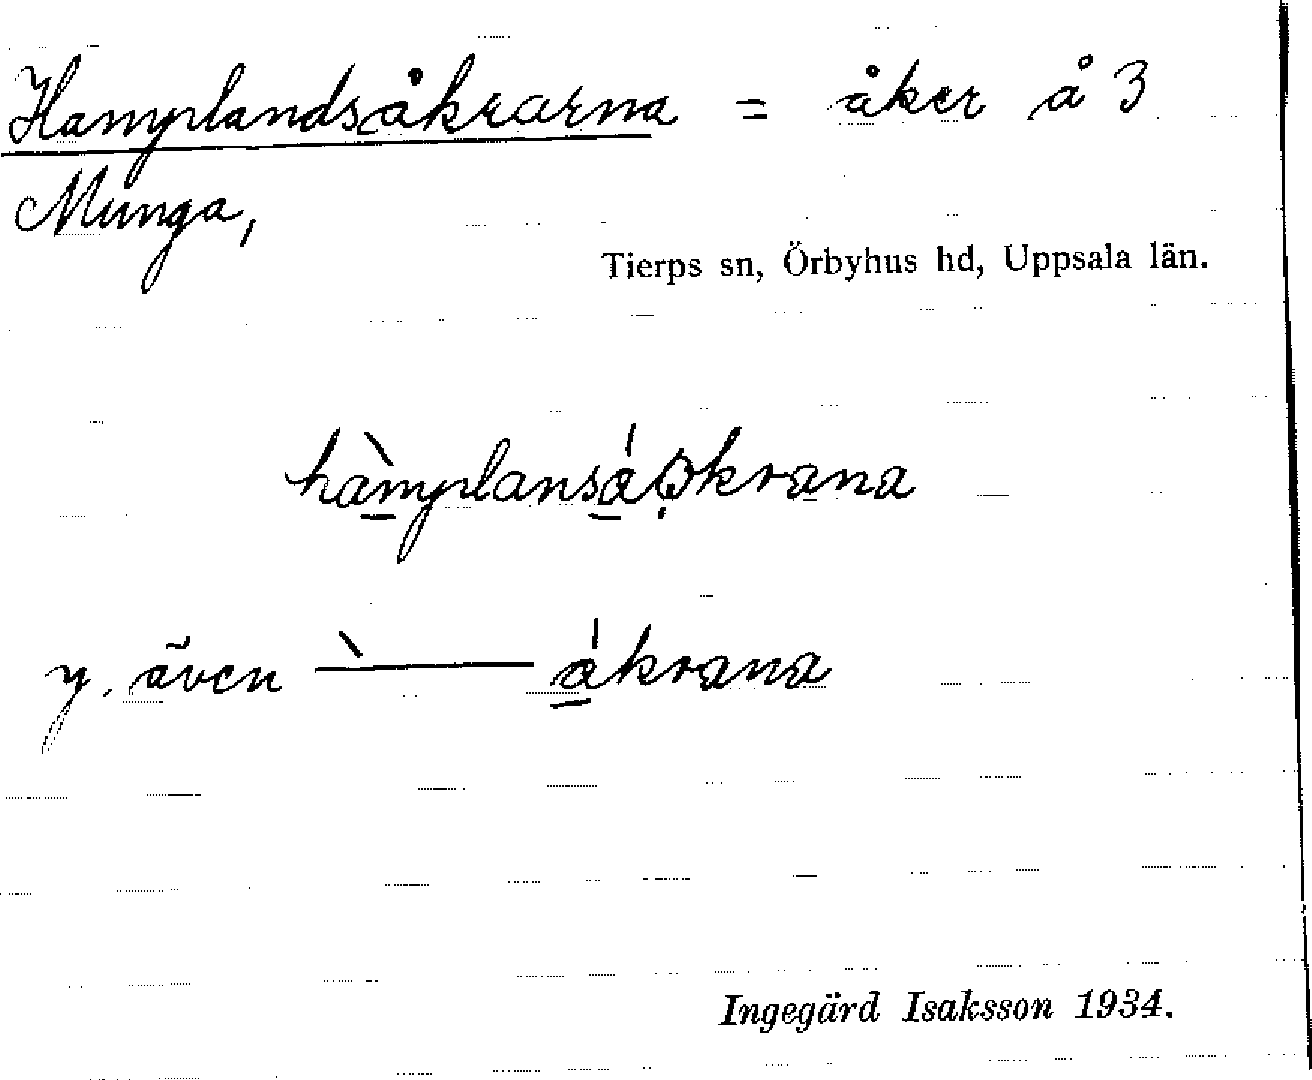 Hamplandsåkrarna = åker å 3
Munga,
Tierps sn, Örbyhus hd, Uppsala län.
y. även
Ingegärd Isaksson 1934.